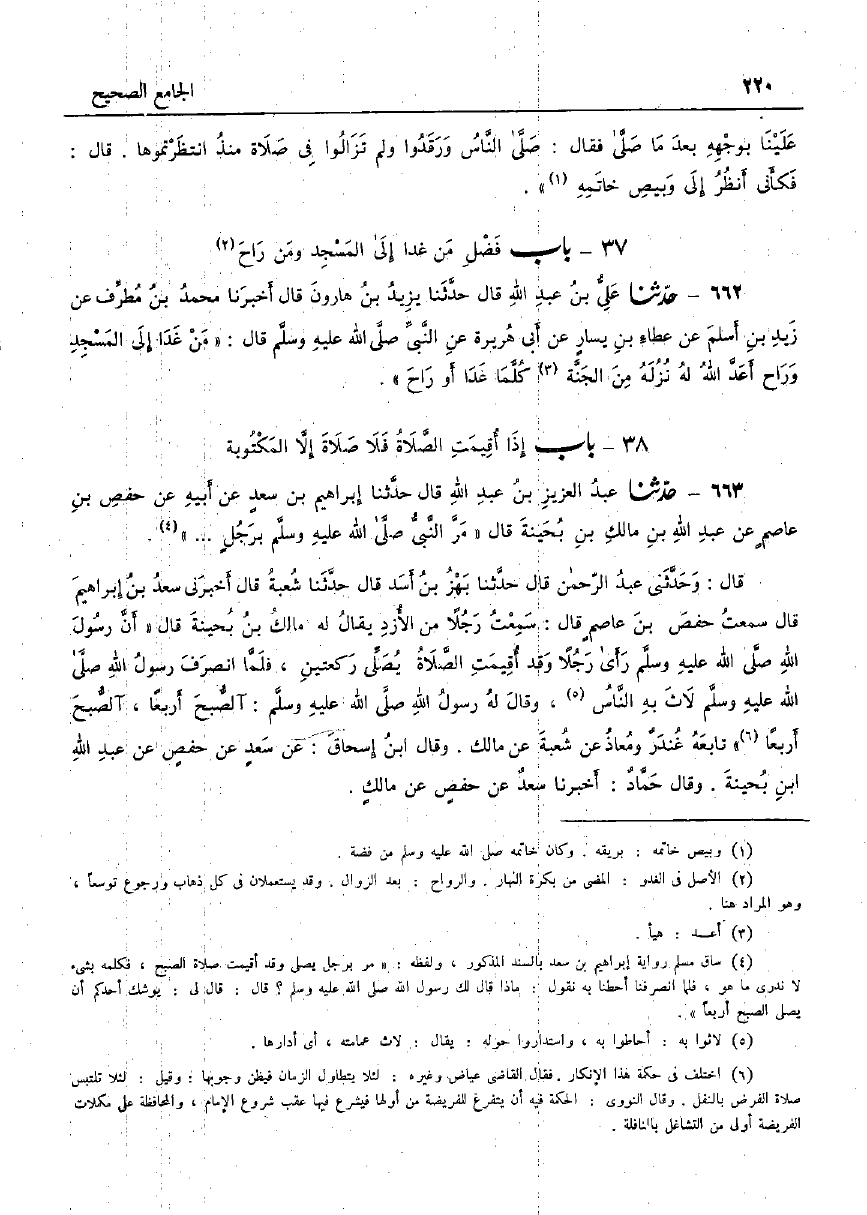 ٢٢٠
الجامع الصحيح
عَلَيْنَا بوجْهِهِ بعدَ مَا صَلَّىٰ فقال : صَلَّىٰ النَّاسُ وَرَقَدُوا ولم تَزَالُوا فى صَلَاة منذُ انتظَرْتموها . قال :
فَكأَنى أَنظُرُ إِلَى وَبيصِ خاتَمِهِ (١)» .
٣٧ – باب فَضْلِ مَن غدا إِلَىٰ المَسْجِد ومَن رَاحَ(٢)
٦٦٢ – حدّثنا عَلِيُّ بنُ عبدِ اللهِ قال حدَّثَنا يزيدُ بنُ هارونَ قال أَخبرَنا محمدُ بنُ مُطرِّف عن
زَيدِ بنِ أَسلمَ عن عطاءِ بنِ يسارٍ عن أَبى هُريرة عنِ النَّبىِّ صلَّى الله عليهِ وسلَّم قال : « مَنْ غَدَا إِلَى المَسْجِدِ
وَرَاح أَعَدَّ اللهُ لهُ نُزُلَهُ مِنَ الجَنَّة (٣) كُلَّمَا غَدَا أَو رَاحَ » .
٣٨ – باب إِذَا أُقِيمَتِ الصَّلَاةُ فَلَا صَلَاةَ إِلَّا المَكْتُوبة
٦٦٣ – حدّثنا عبدُ العزيزِ بنُ عبدِ اللهِ قال حدَّثنا إبراهيم بن سعدٍ عن أَبيهِ عن حفصِ بنِ
عاصمٍ عن عبدِ اللهِ بنِ مالكِ بنِ بُحَينةَ قال « مَرَّ النَّبىُّ صلَّىٰ الله عليهِ وسلَّم برَجُلٍ ... »(٤) .
قال : وَحَدَّثَنى عبدُ الرّحمٰن قال حدثَنا بَهْزُ بنُ أَسَد قال حدَّثَنا شُعبةُ قال أَخبرَنى سعدُ بنُ إبراهيمَ
قال سمعتُ حفصَ بنَ عاصمٍ قال : سَمِعْتُ رَجُلًا من الأَزدِ يقالُ له مالكُ بنُ بُحينةَ قال « أَنَّ رسُولَ
اللهِ صلَّى الله عليهِ وسلَّم رَأَىٰ رَجُلًا وَقد أُقِيمَتِ الصَّلَاةُ يُصَلِّى رَكعتينِ ، فَلَمَّا انصرَفَ رسولُ اللهِ صلَّىٰ
الله عليهِ وسلَّم لَاثَ بهِ النَّاسُ (٥) ، وقالَ لهُ رسولُ اللهِ صلَّى الله عليهِ وسلَّم : آلصُّبحَ أَربعًا ، آلصُّبحَ
أَربعًا (٦)» تابعَهُ غُندَرٌ ومُعاذٌ عن شُعبةَ عن مالك . وقال ابنُ إسحاقَ : عن سَعدٍ عن حفصٍ عن عبدِ اللهِ
ابنِ بُحينةَ . وقال حَمَّادٌ : أَخبرنا سعدٌ عن حفصٍ عن مالكٍ .
(١) وبيص خاتمه : بريقه . وكان خاتمه صلى الله عليه وسلم من فضة .
(٢) الأصل فى الغدو : المضى من بكرة النهار . والرواح : بعد الزوال . وقد يستعملان فى كل ذهاب ورجوع توسعاً ،
وهو المراد هنا .
(٣) أعد : هيأ .
(٤) ساق مسلم رواية إبراهيم بن سعد بالسند المذكور ، ولفظه : « مر برجل يصلى وقد أقيمت صلاة الصبح ، فكلمه بشىء
لا ندرى ما هو ، فلما انصرفنا أحطنا به نقول : ماذا قال لك رسول الله صلى الله عليه وسلم ؟ قال : قال لى : يوشك أحدكم أن
يصلى الصبح أربعاً » .
(٥) لاثوا به : أحاطوا به ، واستداروا حوله : يقال : لاث عمامته ، أى أدارها .
(٦) اختلف فى حكمة هذا الإنكار . فقال القاضى عياض وغيره : لئلا يتطاول الزمان فيظن وجوبها : وقيل : لئلا تلتبس
صلاة الفرض بالنفل . وقال النووى : الحكمة فيه أن يتفرغ للفريضة من أولها فيشرع فيها عقب شروع الإمام ، والمحافظة على مكملات
الفريضة أولى من التشاغل بالنافلة .